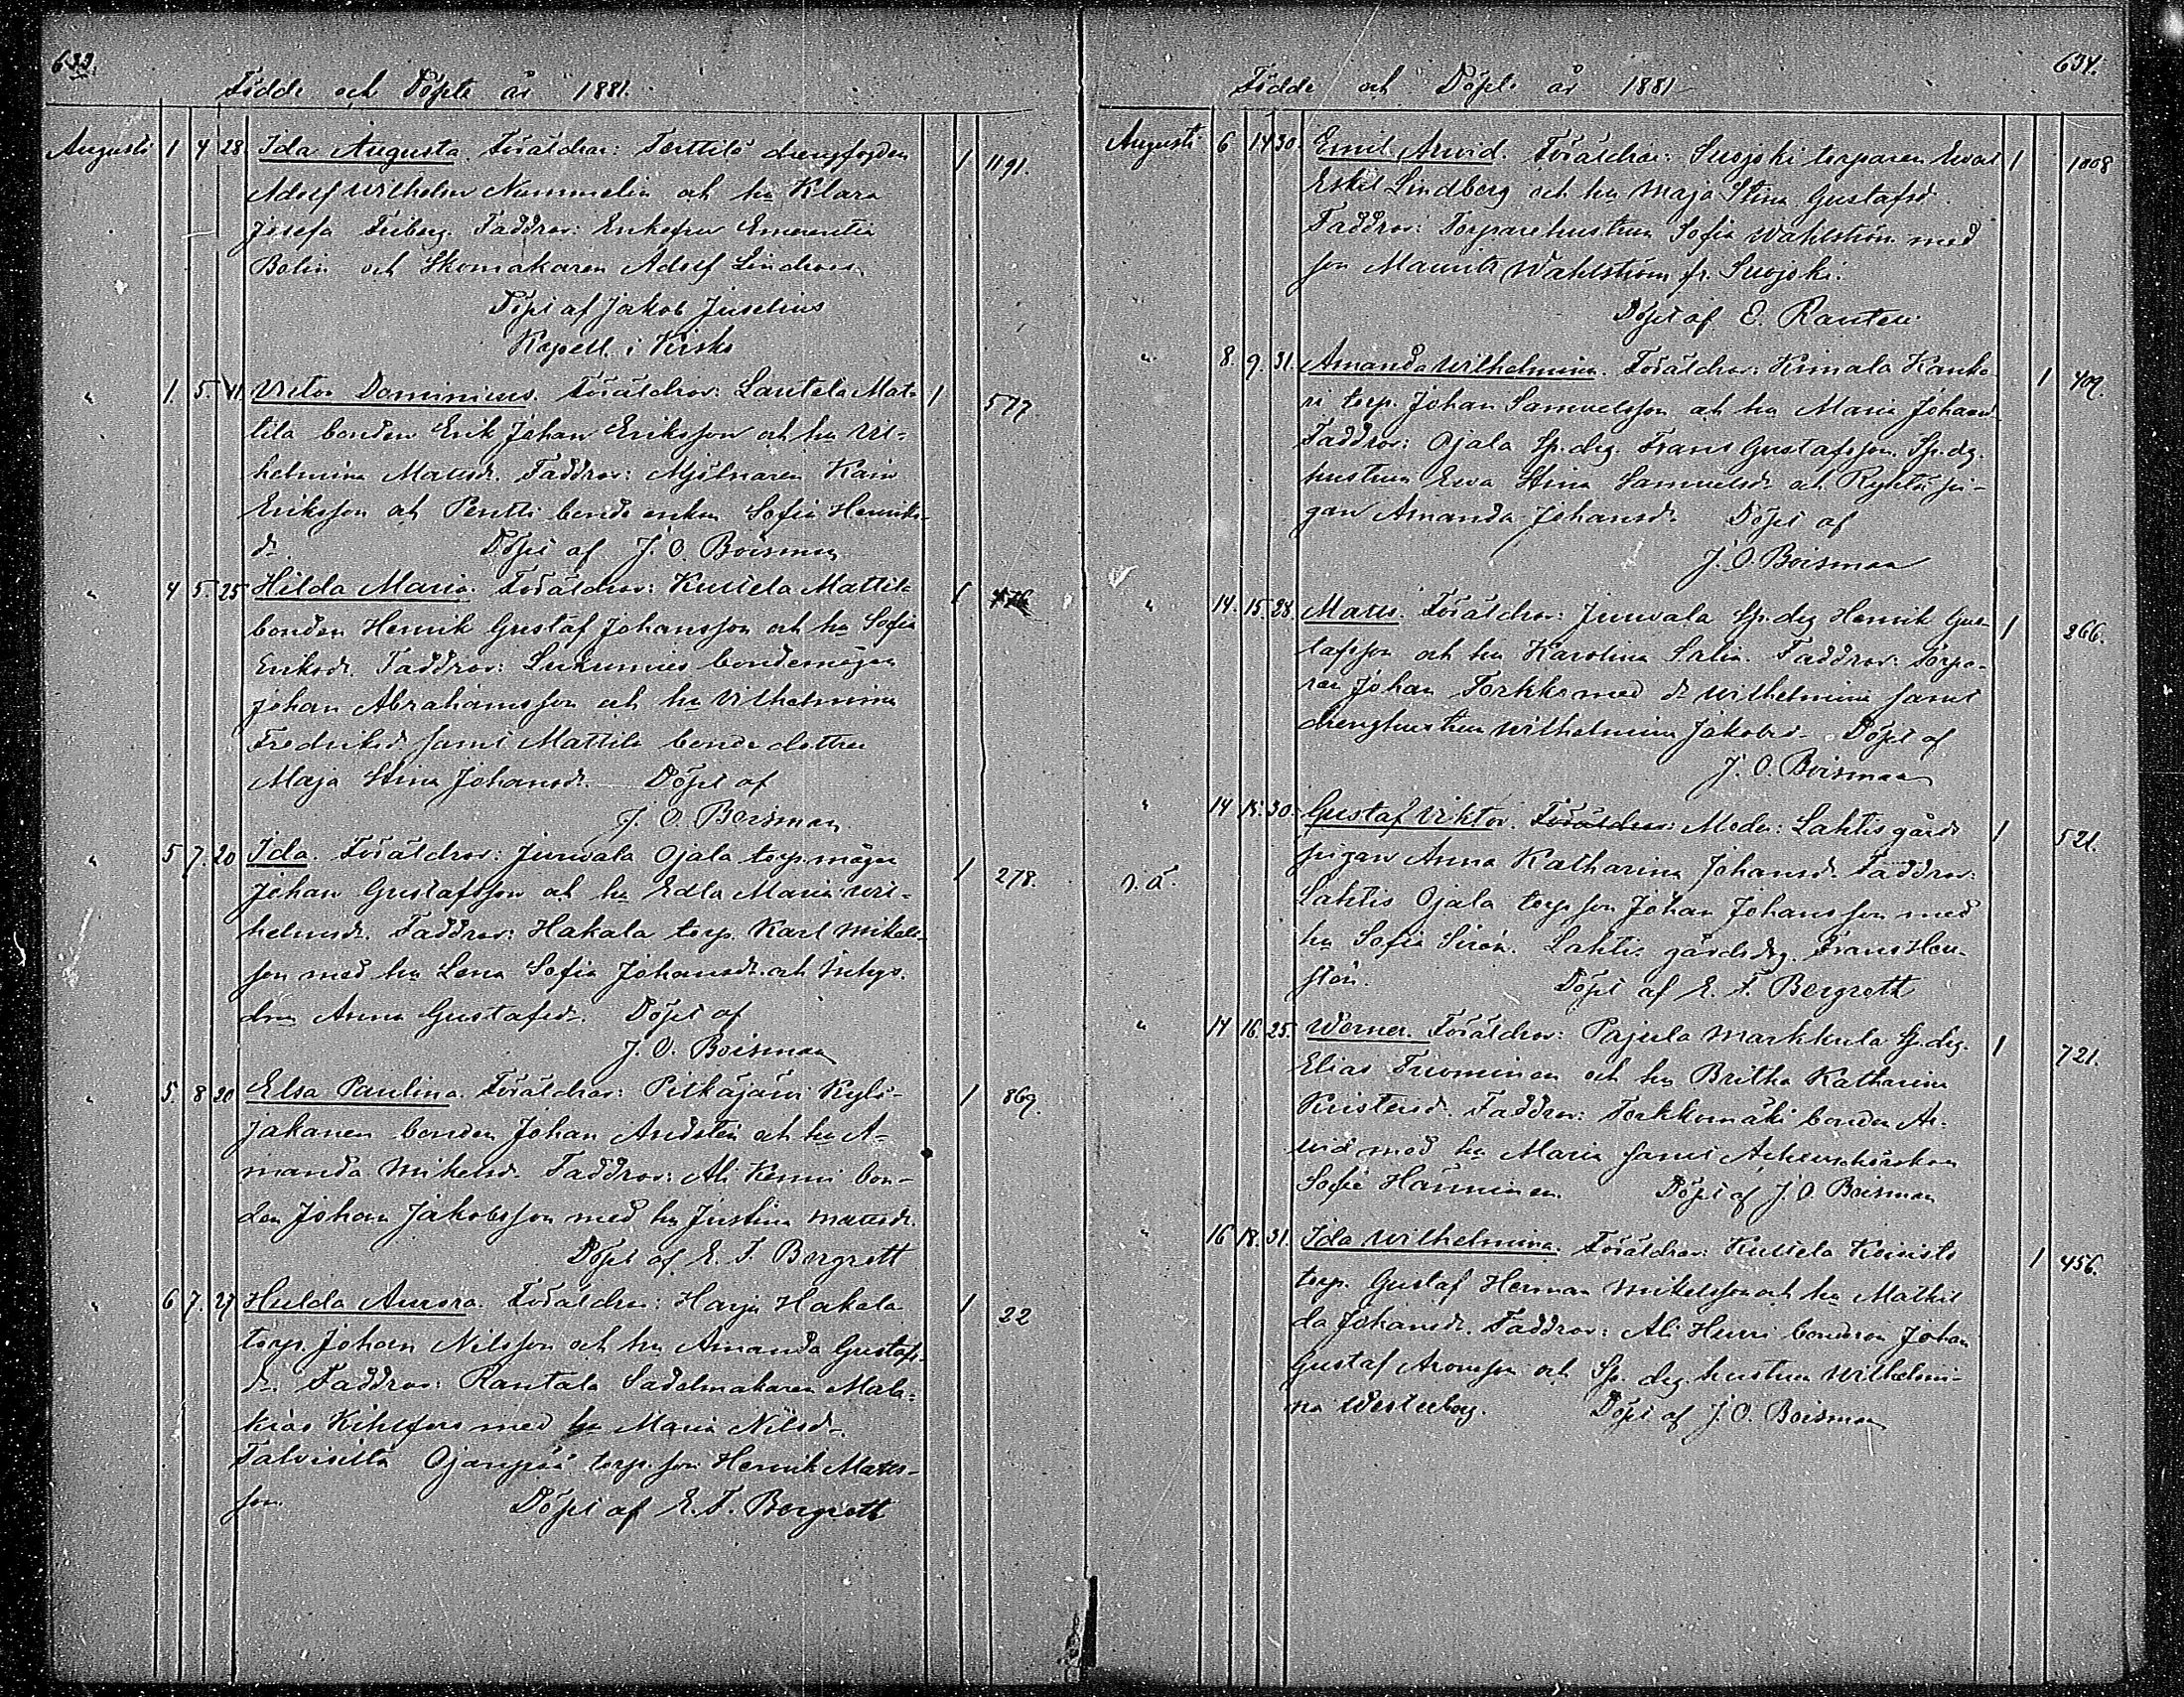 633.
Födde och Döpte år 1881.
Augusti 1 4 28. Ida Augusta. Föräldrar: Terttilä drengfogden 1 1191.
Adolf Wilhelm Nummelin och hu Klara
Josefa Friberg. Faddrar: Enkefru Emerentia
Bolin och Skomakaren Adolf Lindroos.
Döpt af Jakob Juselius
Kapell. i
" 1. 5. 41. Victor Dominicus. Föräldrar: Lautela Mat- 1 577.
tila bonden Erik Johan Eriksson och hu Vil-
helmina Mattsdr. Faddrar: Mjölnaren Kain
Eriksson och Pentti bonde enkan Sofia Henriks-
dr. Döpt af J. O. Boisman
" 4 5. 25 Hilda Maria. Föräldrar: Kuuela Mattila 1
bonden Henrik Gustaf Johansson och hu Sofia
Eriksdr. Faddrar: bondemågen
Johan Abrahamsson och hu Vilhelmina
Fredriksd. samt Mattila bonde dottren
Maja Stina Johansdr. Döpt af
J. O. Boisman
" 5 7. 20 Ida. Föräldrar: Juuvala Ojala torp.mågen 1 278.
Johan Gustafsson och hu Edla Maria Vil-
helmsdr. Faddrar: Hakala torp. Karl Mikels-
son med hu Lena Sofia Johansdr. och Inhys-
Anna Gustafsdr. Döpt af
J. O. Boisman
" 5. 8 20 Elsa Paulina. Föräldrar: Pitkäjärvi Kylä- 1 869.
jakanen bonden Johan Andstén och hu A-
manda Mikelsd. Faddrar: Ali Kenni bon-
den Johan Jakobsson med hu Justina Mattsdr.
Döpt af E. F. Bergroth
" 6 7. 27 Hulda Aurora. Föräldrar: Harju Hakala 1 22
torp. Johan Nilsson och hu Amanda Gustafs-
dr. Faddrar: Rautala Sadelmakaren Mala-
kias Kihlfors med hu Maria Nilsd.
Talvisilta Ojanpää torp. son Henrik Matts-
son. Döpt af E. F. Bergroth
634.
Födde och Döpte år 1881
Augusti 6 14 30. Emil Arvid. Föräldrar: Suojoki torparen Evert 1 1008
Eskil Lindberg och hu Maja Stina Gustafsd.
Faddrar: Torparehustrun Sofia Wahlström med
son Mauritz Wahlström fr. Suojoki.
Döpt af E. Rantell
" 8. 9. 31. Amanda Wilhelmina. Föräldrar: Kimala Kanka- 1 409.
ri torp. Johan Samuelsson och hu Maria Johansd.
Faddrar: Ojala Sp. drg. Frans Gustafsson. Sp. dg.
hustrun Eva Stina Samuelsdr. och Ryhtä pi-
gan Amanda Johansdr. Döpt af
J. O. Boisman
" 14. 15. 28. Matts. Föräldrar: Juuvala Sp. drg Henrik Gus- 1 266.
tafsson och hu Karolina Salin. Faddrar: torpa-
ren Johan Torkko med dr Wilhelmina samt
drenghustrun Wilhelmina Jakobsd. Döpt af
J. O. Boisman
" 14 15. 30. Gustaf Viktor. Föräldrar: Moder: Lahtis gårds 1 521.
pigan Anna Katharina Johansd. Faddrar:
o. ä. Lahtis Ojala torp son Johan Johansson med
hu Sofia Sirén. Lahtis gårds drg. Frans Hen-
stén. Döpt af E. F. Bergroth
" 14 16. 25. Werner. Föräldrar: Pajula Markkula Sp. drg. 1 721.
Elias Tuominen och hu Britha Katharina
Kristersd. Faddrar: Torkkomäki bonden Ar-
vid med hu Maria samt
Sofie Hänninen. Döpt af J. O. Boisman
" 16 18. 31. Ida Wilhelmina. Föräldrar: Kuuela Koivisto 1 456.
torp. Gustaf Herman Mikelsson och hu Mathil
da Johansdr. Faddrar: Ali Huvi bondson Johan
Gustaf Aronsson och Sp. drg. hustrun Wilhelmi-
na Westerberg. Döpt af J. O. Boisman